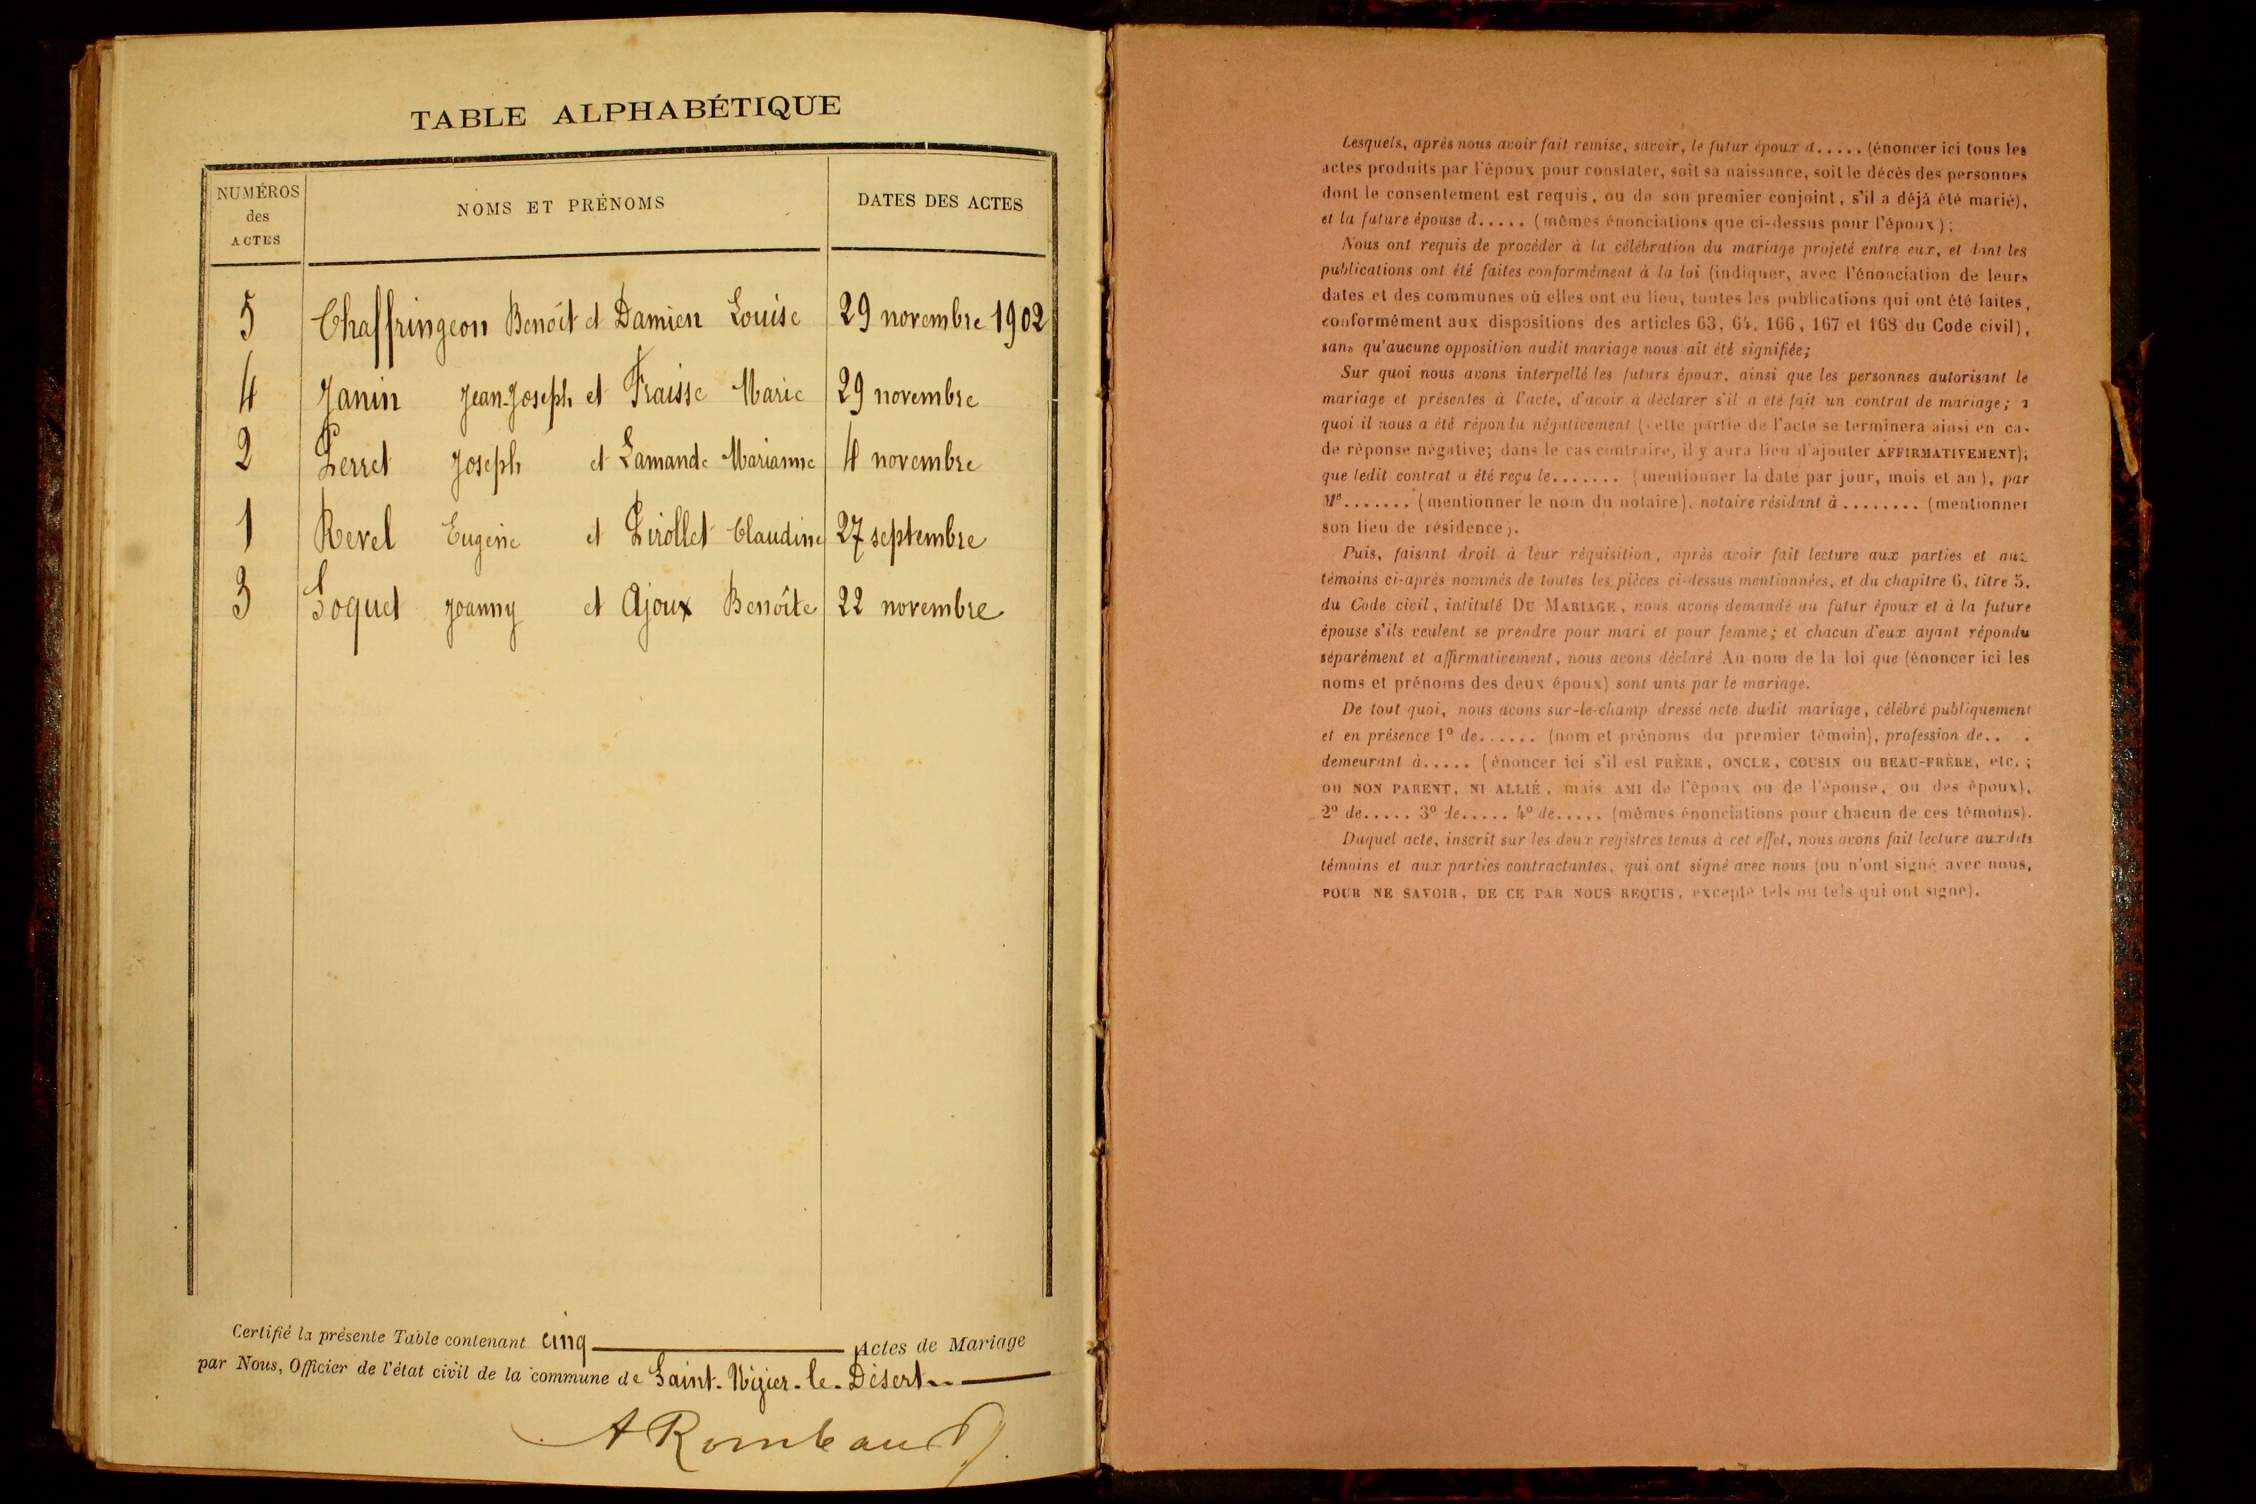 TABLE ALPHABÉTIQUE
NUMÉROS des ACTES
NOMS ET PRÉNOMS
DATES DES ACTES
5 Chaffringeon Benoît et Damien Louise 29 novembre 1902
4 Janin Jean-Joseph et Fraisse Marie 29 novembre
2 Perret Joseph et Lamande Marianne 4 novembre
1 Revel Eugène et Pirollet Claudine 27 septembre
3 Soquet Joanny et Ajoux Benoîte 22 novembre
Certifié la présente Table contenant cinq Actes de Mariage
par Nous, Officier de l'état civil de la commune de Saint-Nizier-le-Désert
Lesquels, après nous avoir fait remise, savoir, le futur époux d..... (énoncer ici tous les
actes produits par l'époux pour constater, soit sa naissance, soit le décès des personnes
dont le consentement est requis, ou de son premier conjoint, s'il a déjà été marié),
et la future épouse d..... (mêmes énonciations que ci-dessus pour l'époux);
Nous ont requis de procéder à la célébration du mariage projeté entre eux, et dont les
publications ont été faites conformément à la loi (indiquer, avec l'énonciation de leurs
dates et des communes où elles ont eu lieu, toutes les publications qui ont été faites,
conformément aux dispositions des articles 63, 64, 166, 167 et 168 du Code civil),
sans qu'aucune opposition audit mariage nous ait été signifiée;
Sur quoi nous avons interpellé les futurs époux, ainsi que les personnes autorisant le
mariage et présentes à l'acte, d'avoir à déclarer s'il a été fait un contrat de mariage; à
quoi il nous a été répondu négativement (cette partie de l'acte se terminera ainsi en cas
de réponse négative; dans le cas contraire, il y aura lieu d'ajouter AFFIRMATIVEMENT);
que ledit contrat a été reçu le....... (mentionner la date par jour, mois et an), par
Me....... (mentionner le nom du notaire), notaire résidant à ........ (mentionner
son lieu de résidence).
Puis, faisant droit à leur réquisition, après avoir fait lecture aux parties et aux
témoins ci-après nommés de toutes les pièces ci-dessus mentionnées, et du chapitre 6, titre 5,
du Code civil, intitulé DU MARIAGE, nous avons demandé au futur époux et à la future
épouse s'ils veulent se prendre pour mari et pour femme; et chacun d'eux ayant répondu
séparément et affirmativement, nous avons déclaré Au nom de la loi que (énoncer ici les
noms et prénoms des deux époux) sont unis par le mariage.
De tout quoi, nous avons sur-le-champ dressé acte dudit mariage, célébré publiquement
et en présence 1º de...... (nom et prénoms du premier témoin), profession de.. .
demeurant à..... (énoncer ici s'il est FRÈRE, ONCLE, COUSIN ou BEAU-FRÈRE, etc.;
ou NON PARENT, NI ALLIÉ, mais AMI de l'époux ou de l'épouse, ou des époux),
2º de..... 3º de..... 4º de..... (mêmes énonciations pour chacun de ces témoins).
Duquel acte, inscrit sur les deux registres tenus à cet effet, nous avons fait lecture auxdits
témoins et aux parties contractantes, qui ont signé avec nous (ou n'ont signé avec nous,
POUR NE SAVOIR, DE CE PAR NOUS REQUIS, excepté tels ou tels qui ont signé).